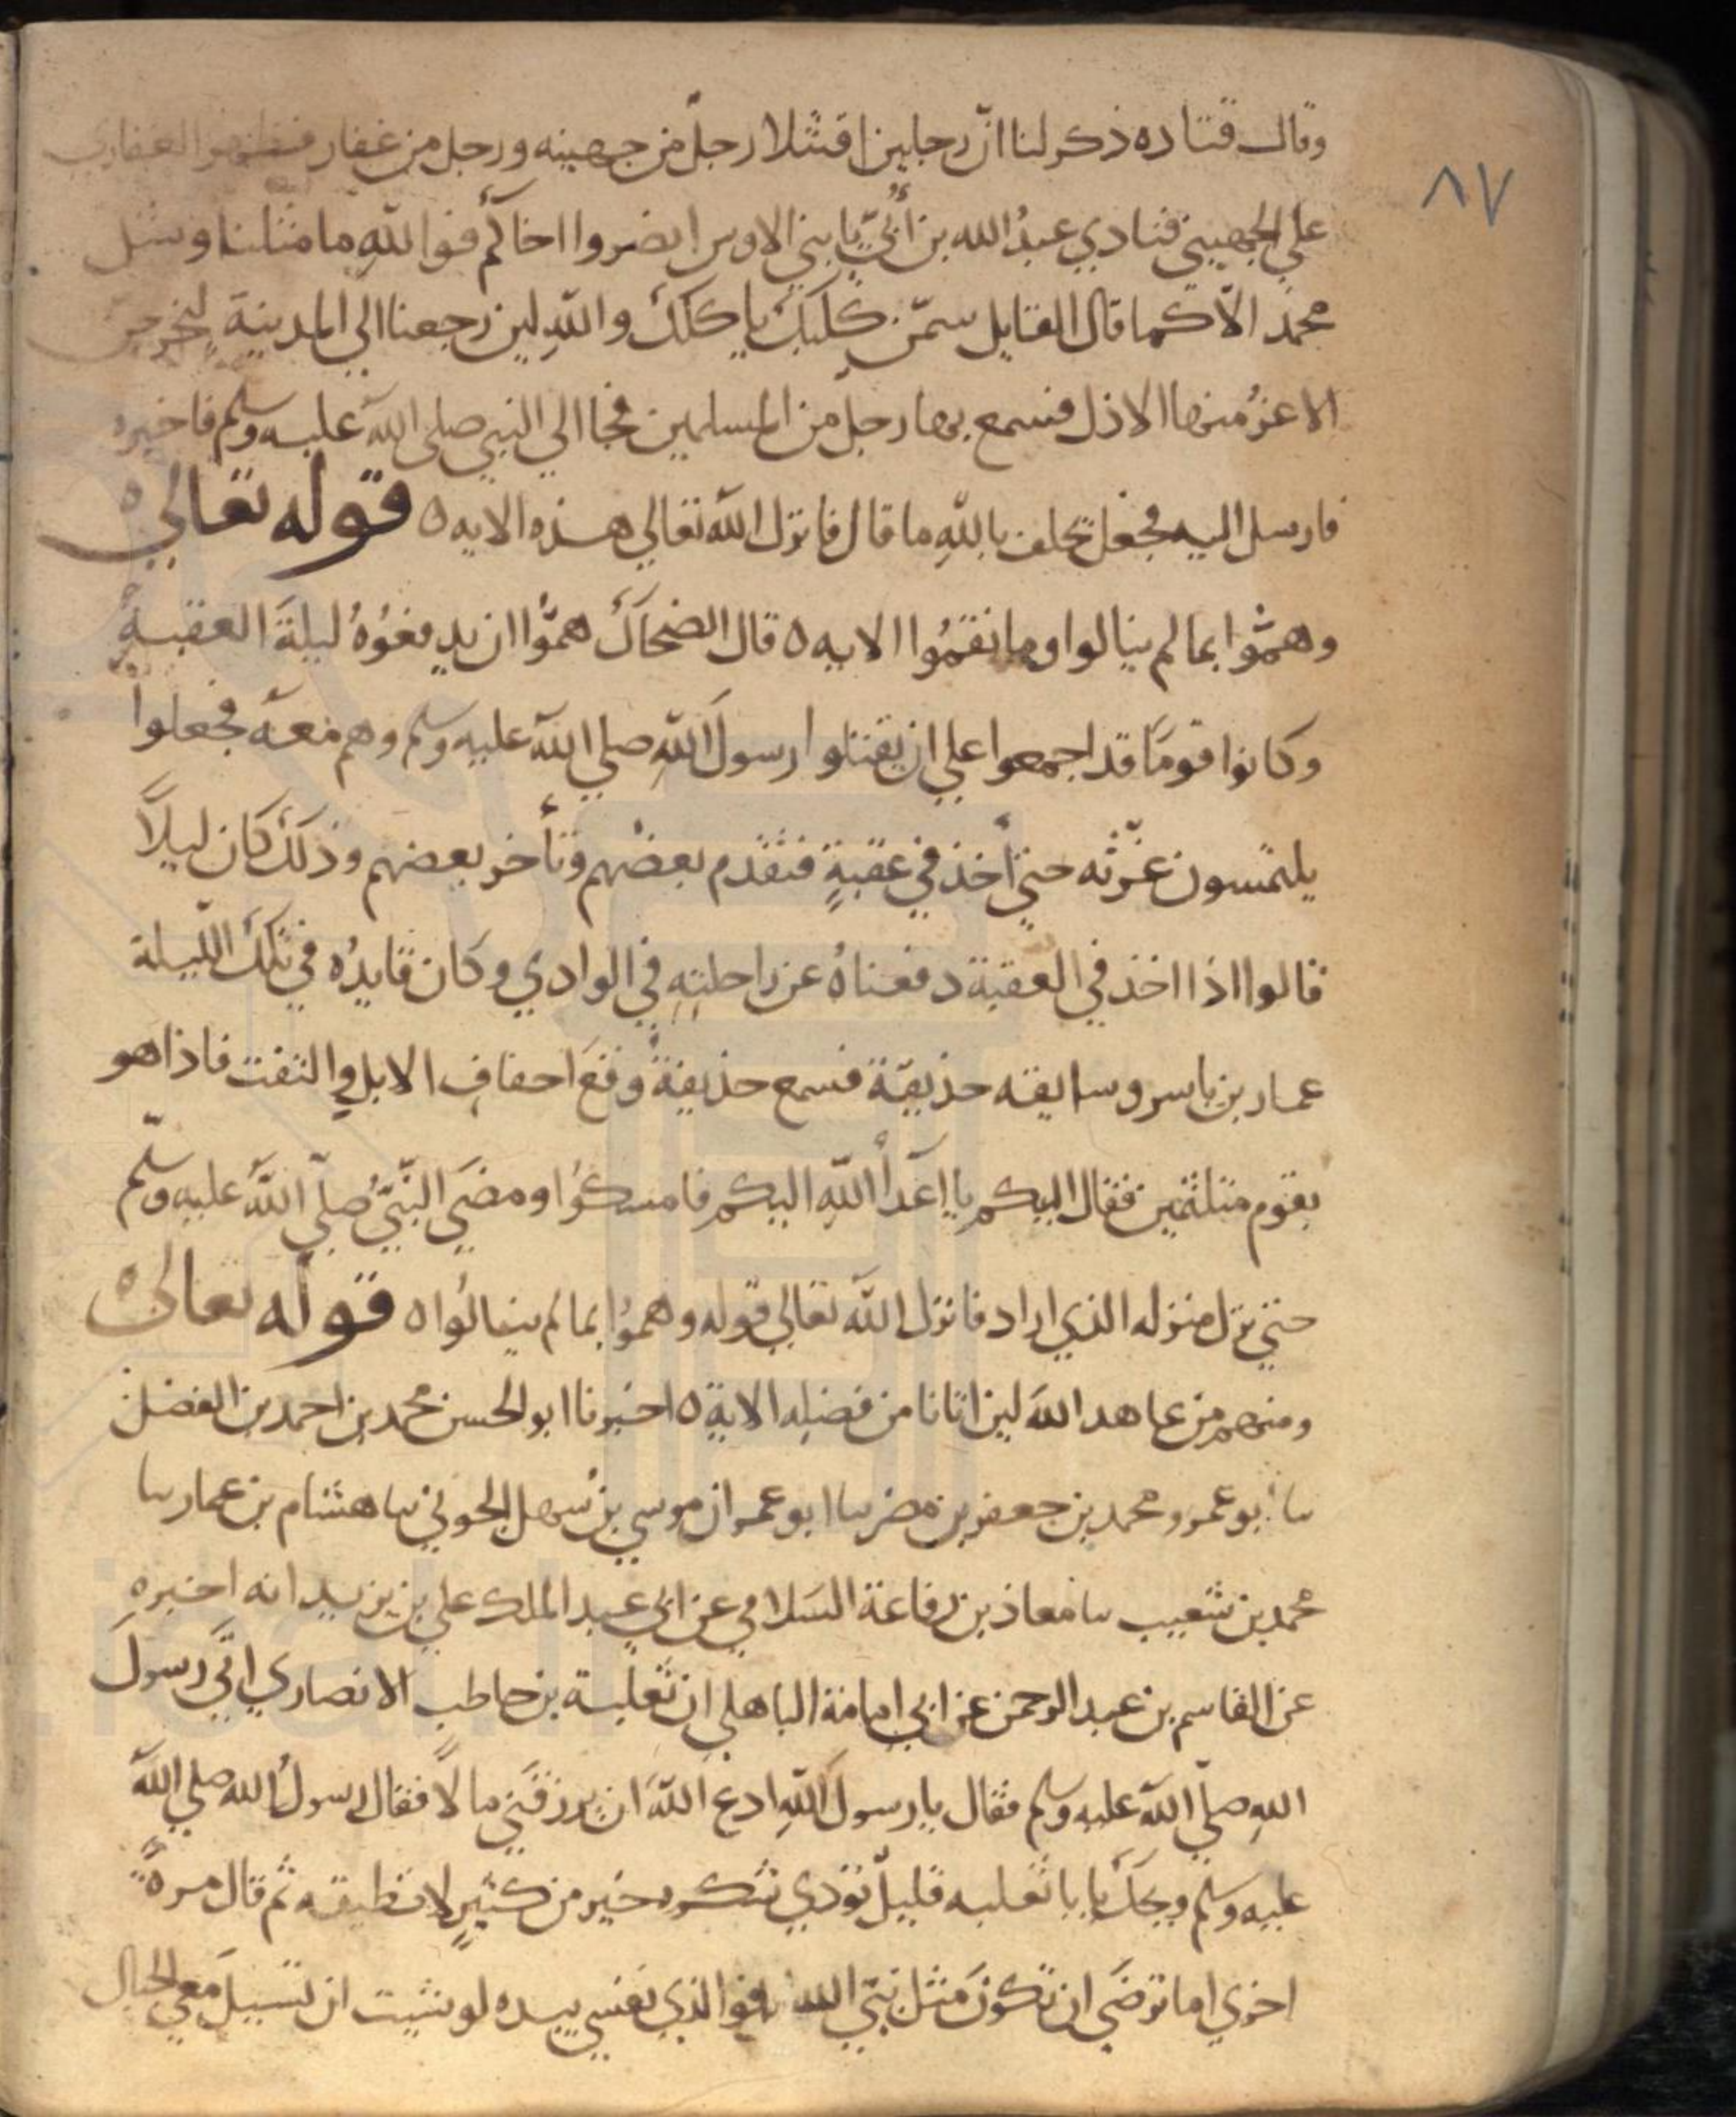 ٨٧
وقال قتاده ذكر لنا انّ رجلين اقتتلا رجلٌ من جهينه ورجل من غفار فظهر الغفاري
علي الجهيني فنادي عبدُ الله بن أُبيّ يا بني الاوس انصروا اخاكم فوالله ما مثلنا ومثل
محمد الّا كما قال القايل سمّن كلبك ياكلك والله لين رجعنا الي المدينة ليخرجن
الاعزُ منها الاذل فسمع بها رجل من المسلمين فجا الي النبي صلى الله عليه وسلم فاخبره
فارسل اليه فجعل يحلف بالله ما قال فانزل الله تعالي هذه الايه ٥ قوله تعالي
وهمّوا بما لم ينالوا وما نقمُوا الايه ٥ قال الضحاك همّوا ان يدفعُوهُ ليلةَ العقبة
وكانوا قومًا قد اجمعوا علي ان يقتلوا رسولَ الله صلي الله عليه وسلم وهم معه فجعلوا
يلتمسون غرّته حتي أخذ في عقبةٍ فتقدم بعضهم وتأخر بعضهم وذلك كان ليلًا
قالوا اذا اخذ في العقبة دفعناهُ عن راحلتِهِ في الوادي وكان قايدُه في تلك الليلة
عمار بن ياسر وسايقه حذيقة فسمع حذيفة وقعَ اخفافِ الابل والتفت فاذا هو
بقوم متلثمين فقال اليكم يا اعدأ الله اليكم فامسكوا ومضَي النّبيُّ صلّي اللهُ عليه وسلّم
حتي نزل منزله الذي اراد فانزل الله تعالي قوله وهموا بما لم ينالُوا ٥ قوله تعالى
ومنهم من عاهد الله لين اتانا من فضله الاية ٥ اخبرنا ابو الحسن محمد بن احمد بن الفضل
سا ابو عمرو محمد بن جعفر بن مضر سا ابو عمران موسي بن سهل الجوني سا هشام بن عمار سا
محمد بن شعيب سا معاذ بن رفاعة السَلامي عن ابي عبد الملك علي بن يزيد انه اخبره
عن القاسم بن عبد الرحمن عن ابي امامة الباهلي ان ثعلبة بن حاطب الانصاري اتي رسولَ
اللهِ صلّي الله عليه وسلم فقال يا رسول الله ادع اللهَ ان يرزقَني مالًا فقال رسولُ الله صلي الله
عليه وسلم ويحك يا با ثعلبه قليلٌ تؤدي شكره خير من كثيرٍ لا تطيقه ثم قال مرةً
اخري اما ترضَي ان تكونَ مثل نبيّ الله فوالذي نفسي بيده لو شيت ان تسيلَ معي الجبال